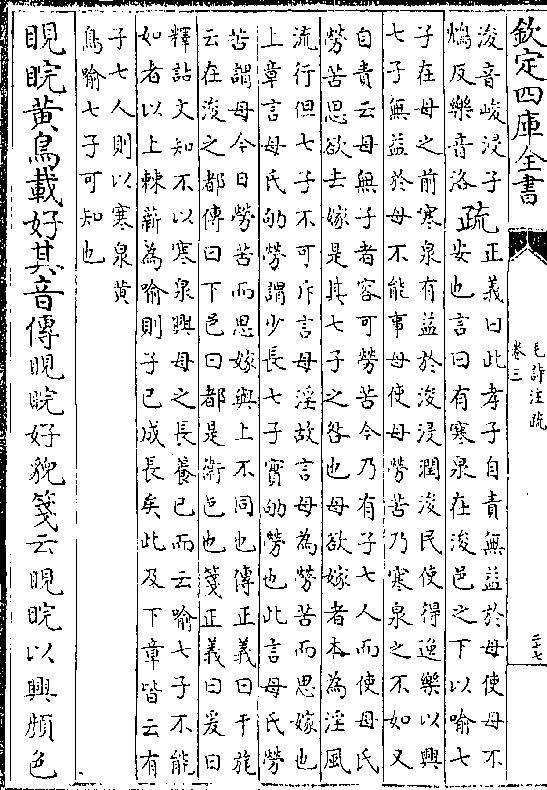 欽定四庫全書
毛詩注疏
卷三
浚音峻浸子
鴆反樂音洛
疏
正義曰此孝子自責無益於母使母不
安也言曰有寒泉在浚邑之下以喻七
子在母之前寒泉有益於浚浸潤浚民使得逸樂以興
七子無益於母不能事母使母勞苦乃寒泉之不如又
自責云母無子者容可勞苦今乃有子七人而使母氏
勞苦思欲去嫁是其七子之咎也母欲嫁者本為淫風
流行但七子不可斥言母淫故言母為勞苦而思嫁也
上章言母氏劬勞謂少長七子實劬勞也此言母氏勞
苦謂母今日勞苦而思嫁與上不同也傳正義曰干旄
云在浚之都傳曰下邑曰都是衛邑也箋正義曰爰曰
釋詁文知不以寒泉興母之長養已而云喻七子不能
如者以上棘薪為喻則子已成長矣此及下章皆云有
子七人則以寒泉黃
鳥喻七子可知也
睍睆黃鳥載好其音傳睍睆好貌箋云睍睆以興顏色